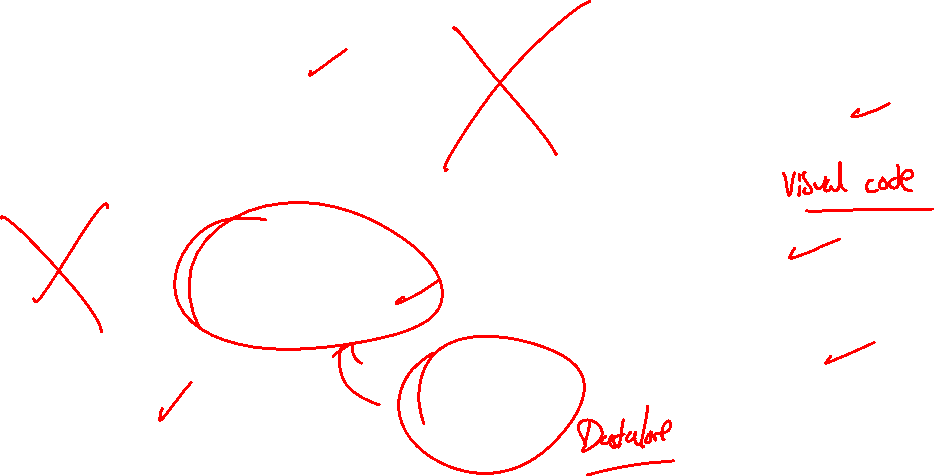 Visual code
Datalore